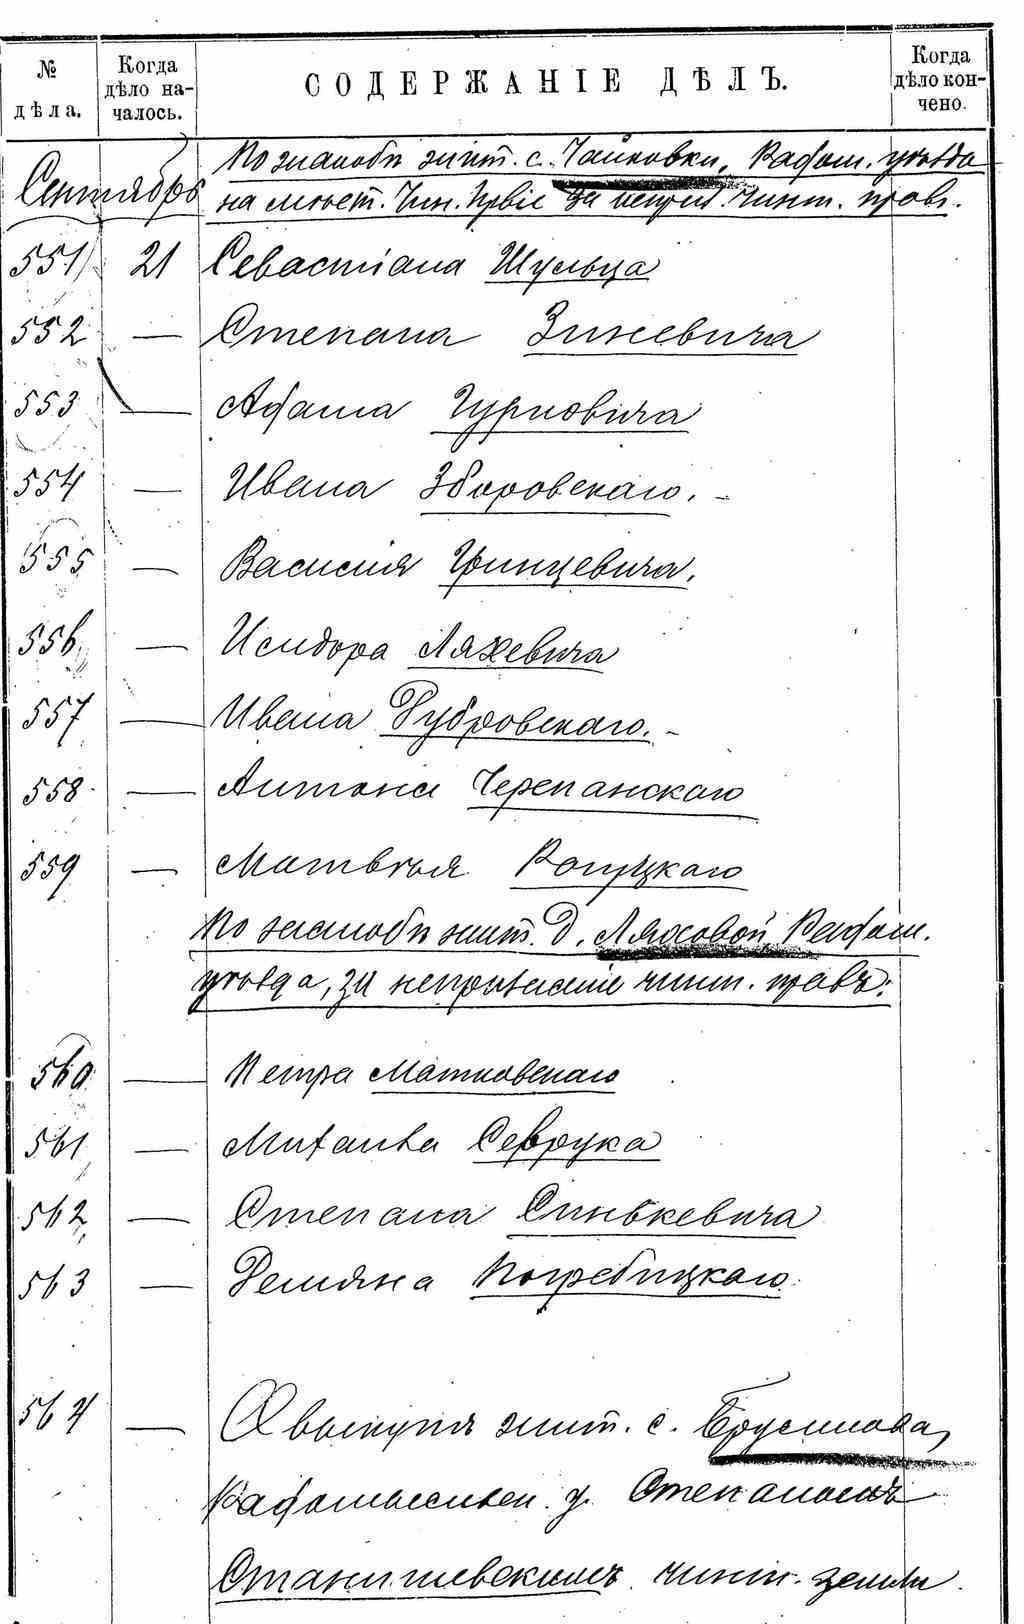 № дѣла.
Когда дѣло началось.
СОДЕРЖАНІЕ ДѢЛЪ.
Когда дѣло кончено.
Сентябрь
По жалобѣ жит. с. Чайковки, Радом. уѣзда
на мѣст. Чин. Прав за непрев. чинш. правъ.
551 21 Севастіана Шульца
552 — Степана Зиневича
553 — Адама Гурковича
554 — Ивана Зборовскаго. -
555 — Василія Гринцевича.
556 — Исидора Ляхевича
557 — Ивана Дубровскаго. -
558 — Антона Черепанскаго
559 — Матвѣя
По жалобѣ жит. д. Ляховой Радом.
уѣзда, за непризнаніе чинш. правъ:
560 — Петра Матковскаго
561 — Михаила Севрука
562 — Степана Синькевича
563 — Демяна Погребицкаго
564 — О выкупѣ жит. с. Брусилова,
Радомысльск. у. Степаномъ
Станишевскимъ чинш. земли.